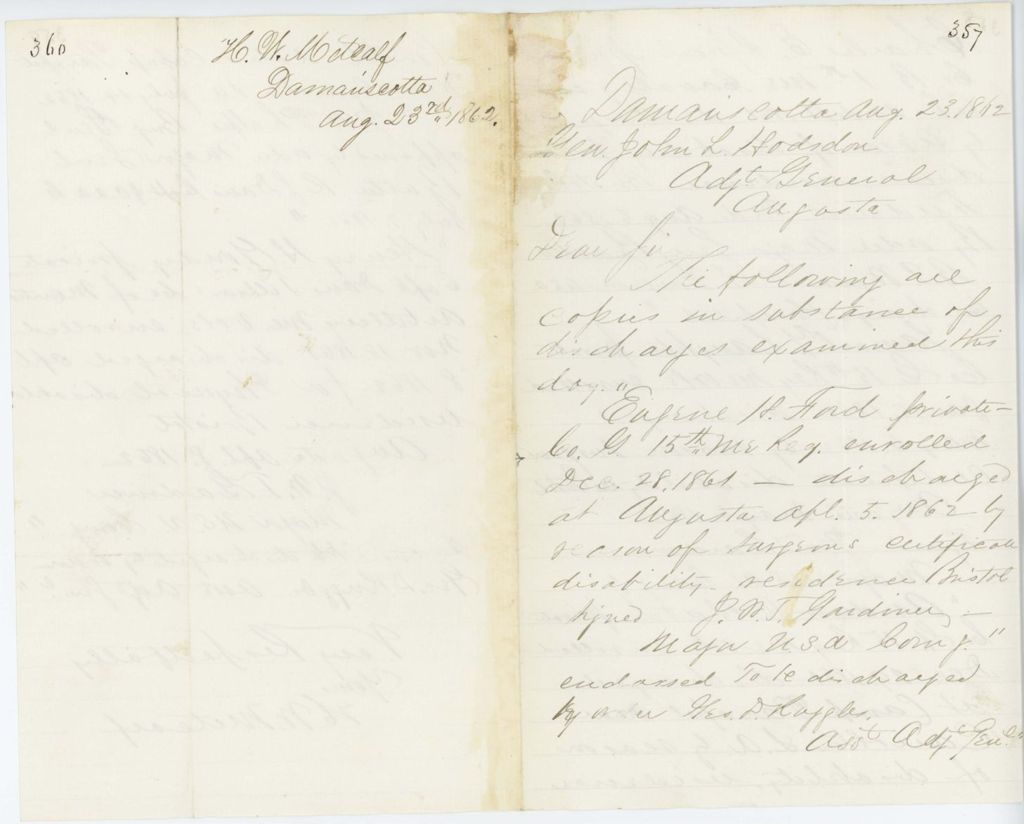 360
H. W. Metcalf
Damariscotta
Aug. 23rd, 1862.
357
Damariscotta Aug. 23. 1862
Gen. John L. Hodsdon
Adjt General
Augusta
Dear Sir
The following are
copies in substance of
discharges examined this
day. "
Eugene H. Ford private
Co. G. 15th Me Reg. enrolled
Dec. 28, 1861 — discharged
at Augusta Apl. 5. 1862 by
reason of surgeons certificate
disability. residence Bristol
signed J. W. T. Gardiner —
Major U.S.A Comg. "
endorsed To be discharged
by order Geo. D. Ruggles.
Asst Adjt Genl